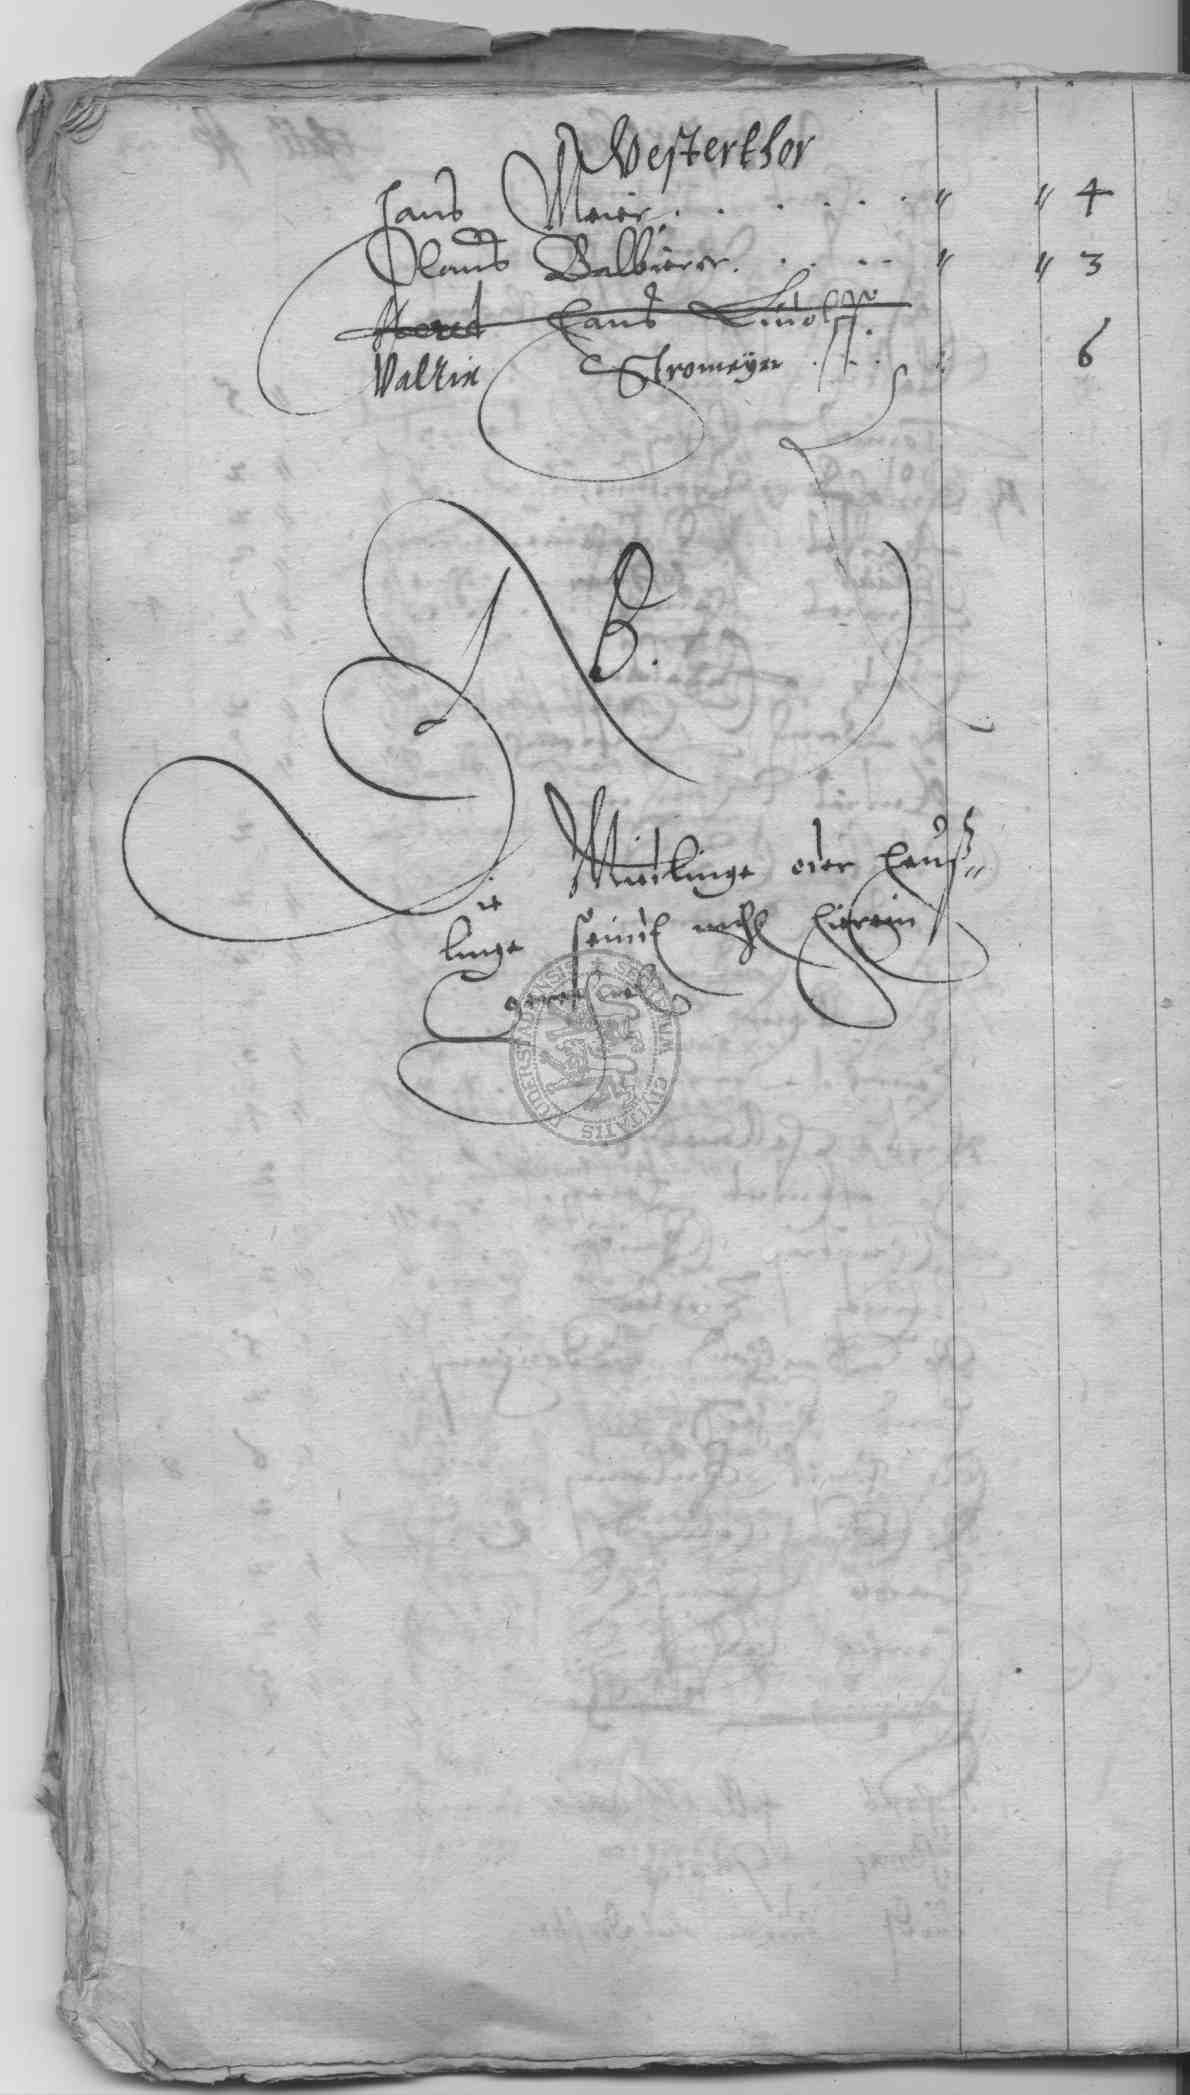 Westerthor
Hans Meier . . . . . . . " " 4
Claus Balbierer . . . . . " " 3
Hans Ludolff
Valtin Stromeyer . . . . " 6
NB.
Die Mietlinge oder Heuß=
linge seindt nicht hierein
Gerechnet
SIGILLUM CIVITATIS DUDERSTADENSIS